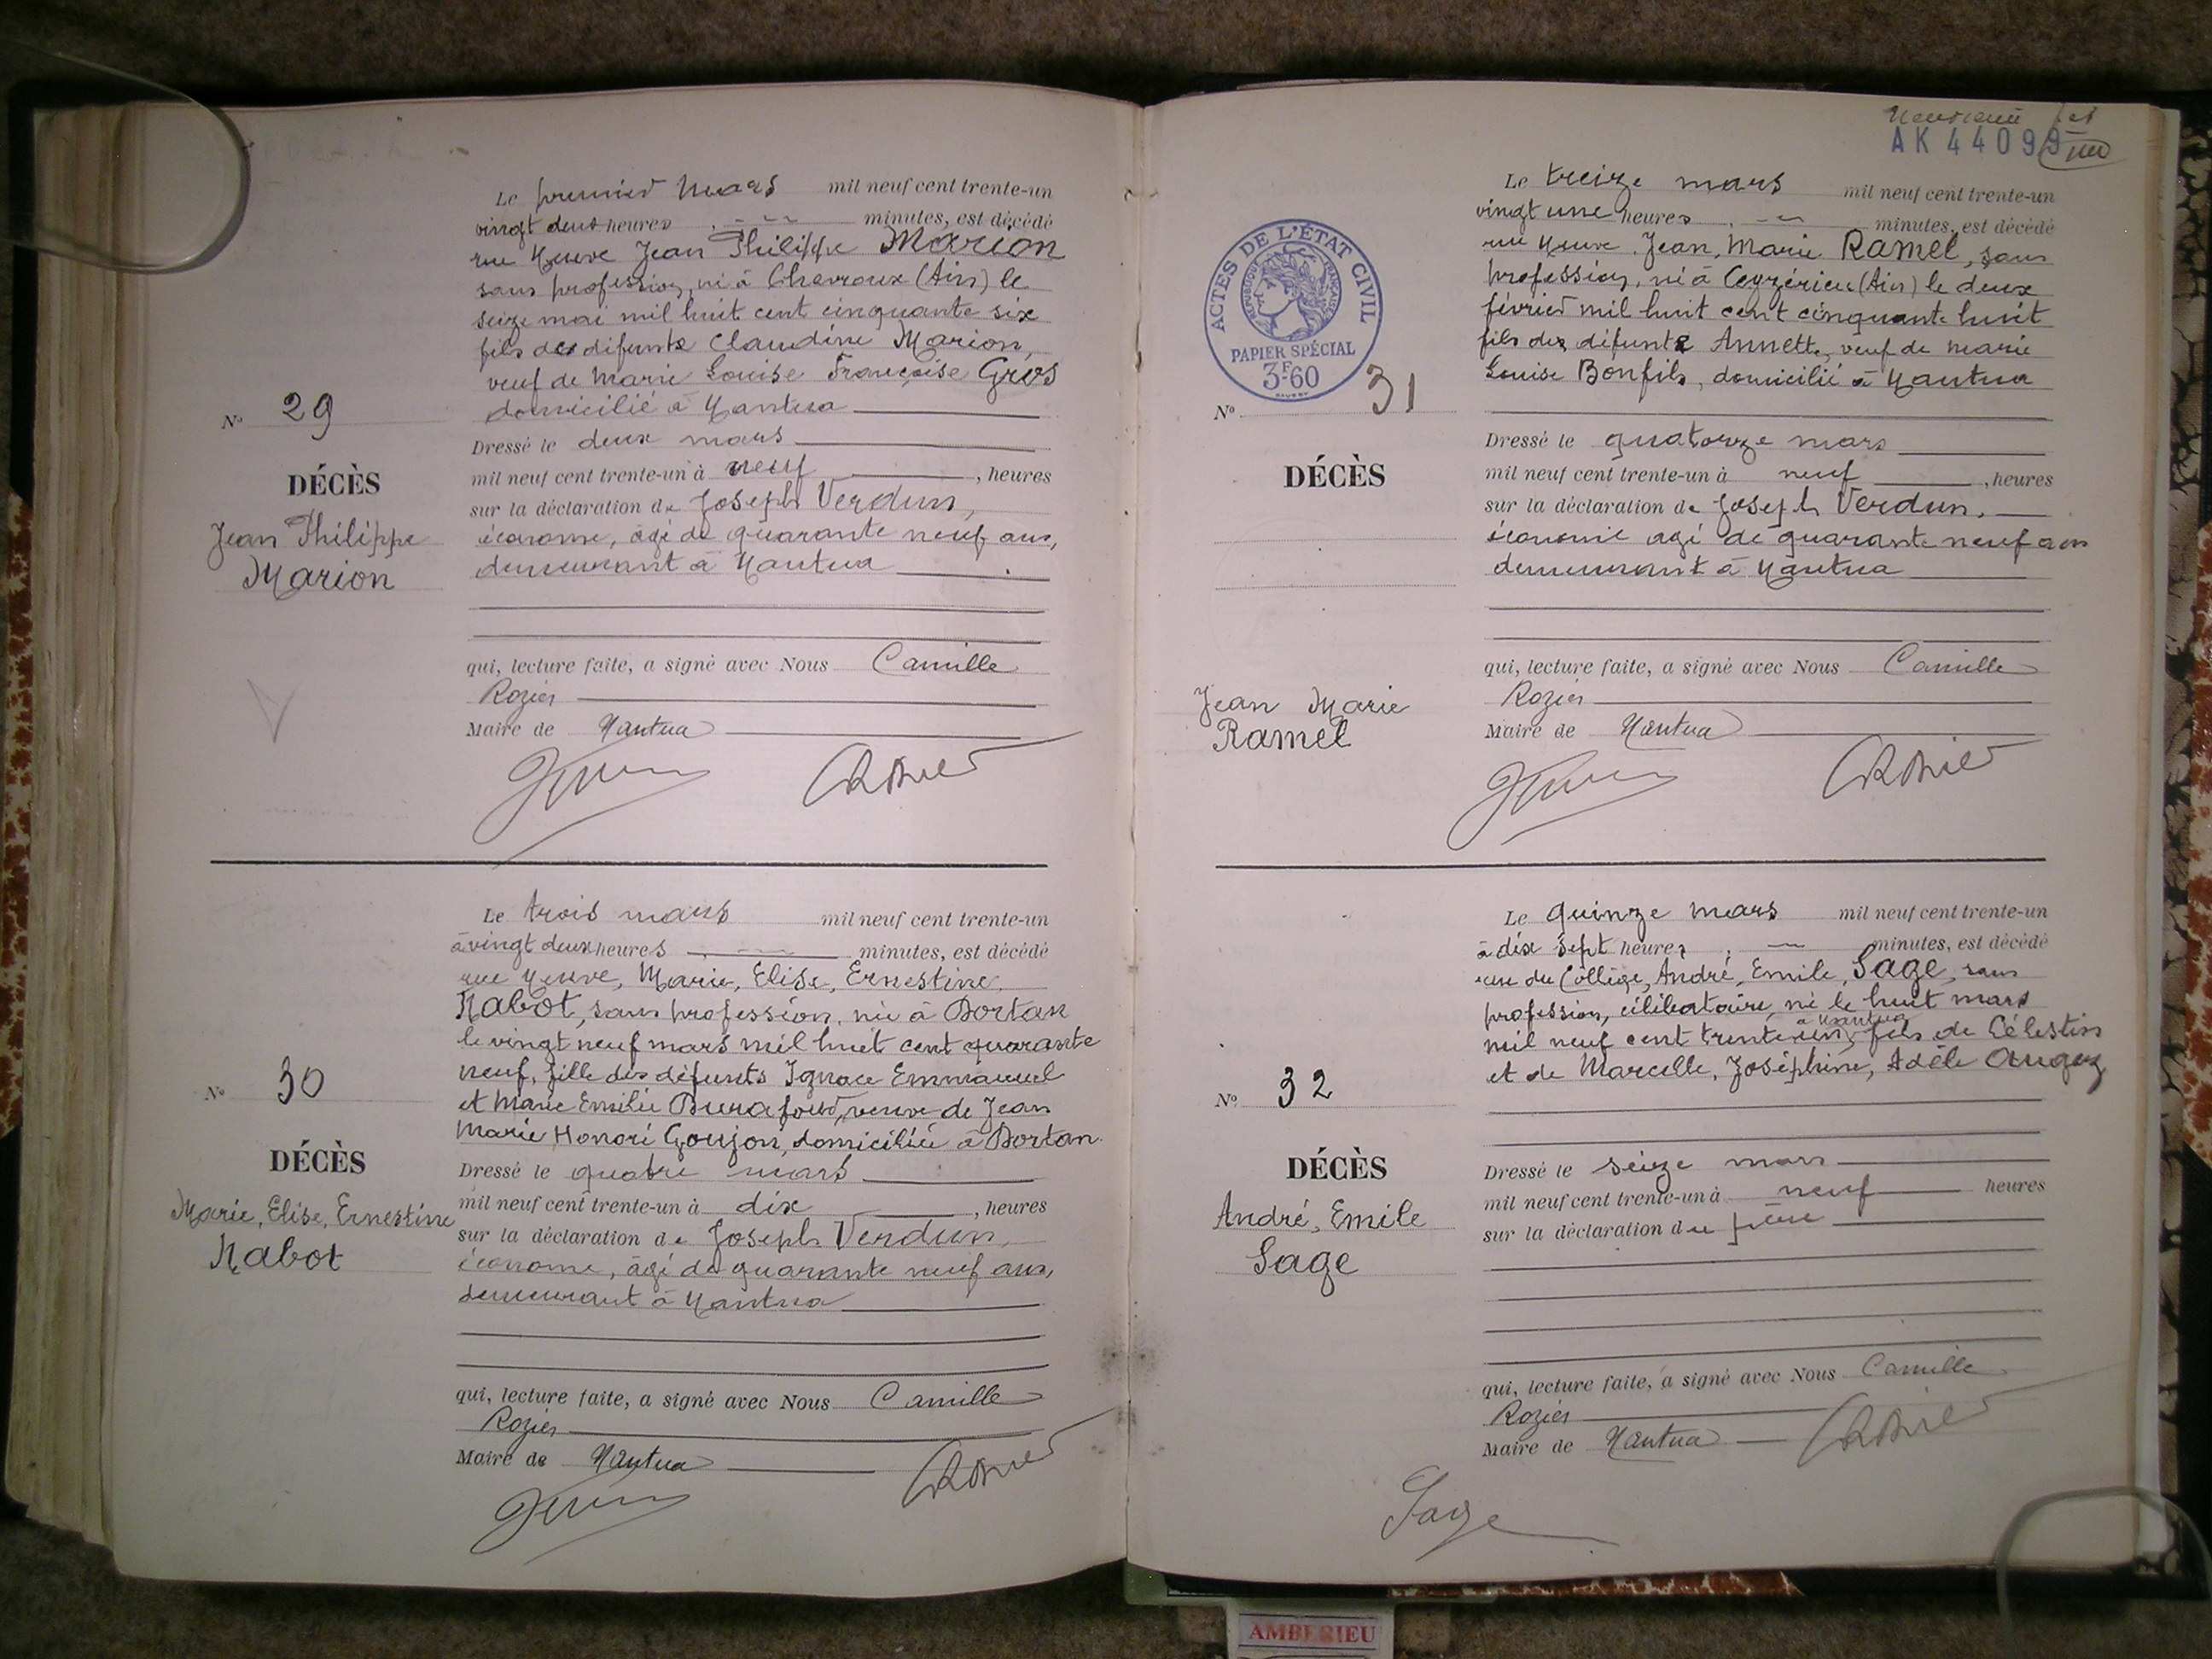 Le premier mars mil neuf cent trente-un
vingt deux heures minutes, est décédé
rue Neuve Jean Philippe Marion
sans profession, né à Chevroux (Ain) le
seize mai mil huit cent cinquante six
fils des défunts Claudine Marion,
veuf de Marie Louise Françoise Gros
domicilié à Nantua
N° 29
Dressé le deux mars
mil neuf cent trente-un à neuf , heures
DÉCÈS
sur la déclaration de Joseph Verdun,
Jean Philippe
Marion
économe, âgé de quarante neuf ans,
demeurant à Nantua
qui, lecture faite, a signé avec Nous Camille
Rozier
Maire de Nantua
Le trois mars mil neuf cent trente-un
à vingt deux heures minutes, est décédé
rue Neuve, Marie, Elise, Ernestine
Nabot, sans profession, née à Dortan
le vingt neuf mars mil huit cent quarante
neuf, fille des défunts Ignace Emmanuel
et Marie Emilie Burafourd, veuve de Jean
Marie Honoré Goujon, domiciliée à Dortan
N° 30
DÉCÈS
Marie, Elise, Ernestine
Nabot
Dressé le quatre mars
mil neuf cent trente-un à dix , heures
sur la déclaration de Joseph Verdun,
économe, âgé de quarante neuf ans,
demeurant à Nantua
qui, lecture faite, a signé avec Nous Camille
Rozier
Maire de Nantua
AK 44099
Le treize mars mil neuf cent trente-un
vingt une heures minutes, est décédé
rue Neuve Jean, Marie Ramel, sans
profession, né à Ceyzérieu (Ain) le deux
février mil huit cent cinquante huit
fils des défunts Annette, veuf de Marie
Louise Bonfils, domicilié à Nantua
ACTES DE L'ÉTAT CIVIL
RÉPUBLIQUE FRANÇAISE
PAPIER SPÉCIAL
3F60
N° 31
DÉCÈS
Jean Marie
Ramel
Dressé le quatorze mars
mil neuf cent trente-un à neuf , heures
sur la déclaration de Joseph Verdun,
économe agé de quarante neuf ans
demeurant à Nantua
qui, lecture faite, a signé avec Nous Camille
Rozier
Maire de Nantua
Le quinze mars mil neuf cent trente-un
à dix sept heures minutes, est décédé
rue du Collège, André, Emile, Sage, sans
profession, célibataire, né le huit mars
à Nantua
mil neuf cent trente-un, fils de Célestin
et de Marcelle, Joséphine, Adèle Augoz
N° 32
DÉCÈS
André, Emile
Sage
Dressé le seize mars
mil neuf cent trente-un à neuf heures
sur la déclaration du père
qui, lecture faite, a signé avec Nous Camille
Rozier
Maire de Nantua
Sage
AMBERIEU